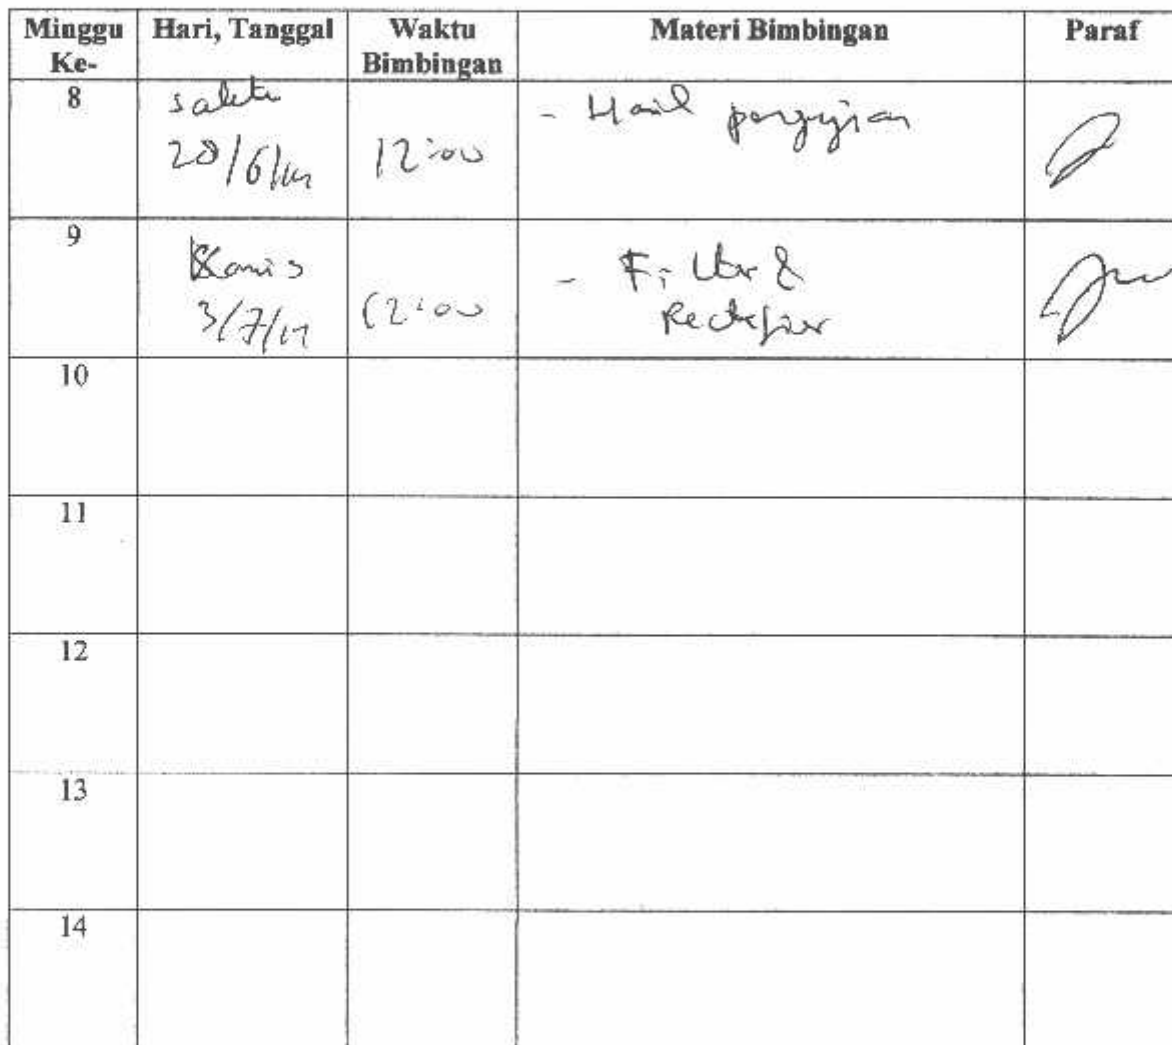 Minggu Ke-
Hari, Tanggal
Waktu Bimbingan
Materi Bimbingan
Paraf
8
sabtu
28/6/14
12:00
- Hasil pengujian
9
Kamis
3/7/14
12:00
- Filter &
Rectifier
10
11
12
13
14